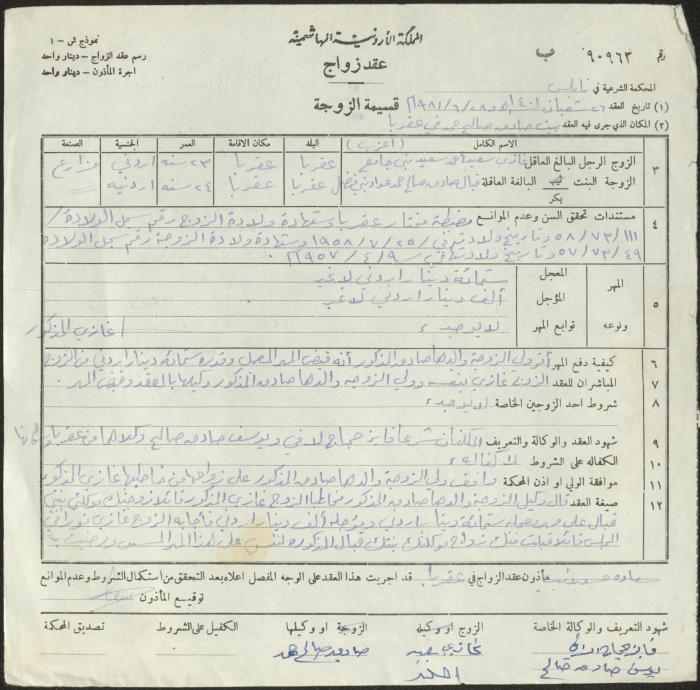 المملكة الأردنية الهاشمية
نموذج ش - ١
رسم عقد الزواج - دينار واحد
اجرة المأذون - دينار واحد
عقد زواج
رقم ٩٠٩٦٣ ب
المحكمة الشرعية في نابلس
(١) تاريخ العقد ٢٦ شعبان ١٤٠١هـ و ٢٨/٦/١٩٨١م
قسيمة الزوجة
(٢) المكان الذي جرى فيه العقد بيت صادق صالح حمد في عقربا
الاسم الكامل (أعزب) البلد مكان الاقامة العمر الجنسية الصنعة
٣ الزوج الرجل البالغ العاقل غازي سعيد احمد سعيد بني جامع عقربا عقربا ٢٣ سنه اردني مزارع
الزوجة البنت البالغة العاقلة قبال صادق صالح حمد عواد بني فضل عقربا عقربا ٢٤ سنه اردنيه
بكر
٤ مستندات تحقق السن وعدم الموانع مضبطة مختار عقربا وشهادة ولادة الزوج رقم سجل الولادة /
١١١/٧٣/٥٨ وتاريخ ولادته في ٢٥/٧/١٩٥٨ وشهادة ولادة الزوجة رقم سجل الولادة
٤٩/٧٣/٥٧ وتاريخ ولادتها في ٩/٤/١٩٥٧م.
٥ المهر ونوعه
المعجل ستمائة دينار اردني لا غير
المؤجل ألف دينار اردني لا غير
توابع المهر لا يوجد / غازي المذكور
٦ كيفية دفع المهر أقر ولي الزوجة والدها صادق المذكور أنه قبض المهر المعجل وقدره ستمائة دينار اردني من الزوج
٧ المباشران للعقد الزوج غازي بنفسه وولي الزوجه والدها صادق المذكور وكيلها بالعقد وقبض المهر.
٨ شروط احد الزوجين الخاصة لا يوجد
٩ شهود العقد والوكالة والتعريف المكلفان شرعا فايز حجاج لافي ويوسف صادق صالح وكلاهما من عقربا وسكانها
١٠ الكفاله على الشروط لا كفالة
١١ موافقة الولي او اذن المحكمة وافق ولي الزوجة والدها صادق المذكور على زواجها من خاطبها غازي المذكور
١٢ صيغة العقد قال وكيل الزوجة والدها صادق المذكور مخاطبا الزوج غازي المذكور قائلا زوجتك موكلتي بنتي
قبال على مهر معجله ستمائة دينار اردني ومؤجله ألف دينار اردني فأجابه الزوج غازي فورا في
المجلس قائلا قبلت منك زواج موكلتك بنتك قبال المذكوره لنفسي على هذا المهر المسمى ورضيت به
مأذون عقد الزواج في عقربا قد اجريت هذا العقد على الوجه المفصل اعلاه بعد التحقق من استكمال الشروط وعدم الموانع
توقيع المأذون
شهود التعريف والوكالة الخاصة الزوج او وكيله الزوجة او وكيلها الكفيل على الشروط تصديق المحكمة
فايز حجاج غازي سعيد صادق صالح حمد
يوسف صادق صالح احمد